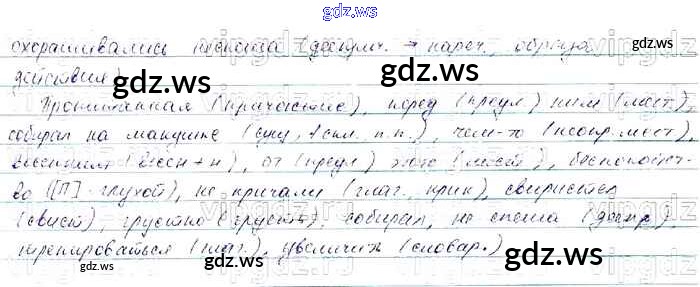 gdz.ws
охорашивались неспеша (дееприч. → нареч. образа
действия)
Пропитанная (причастие), перед (предл) ним (мест.),
собирал на макушке (сущ, 1 скл. п.п.), чем-то (неопр. мест),
весенним (весн + н), от (предл) этого (мест), беспокойст-
во ([П] - глухой), не кричали (глаг. крик), свиристел
(свист), грустно (грусть), собирал, не спеша (деепр),
тренироваться (глаг.), увеличить (словар.)
gdz.ws
gdz.ws
gdz.ws
gdz.ws
gdz.ws
gdz.ws